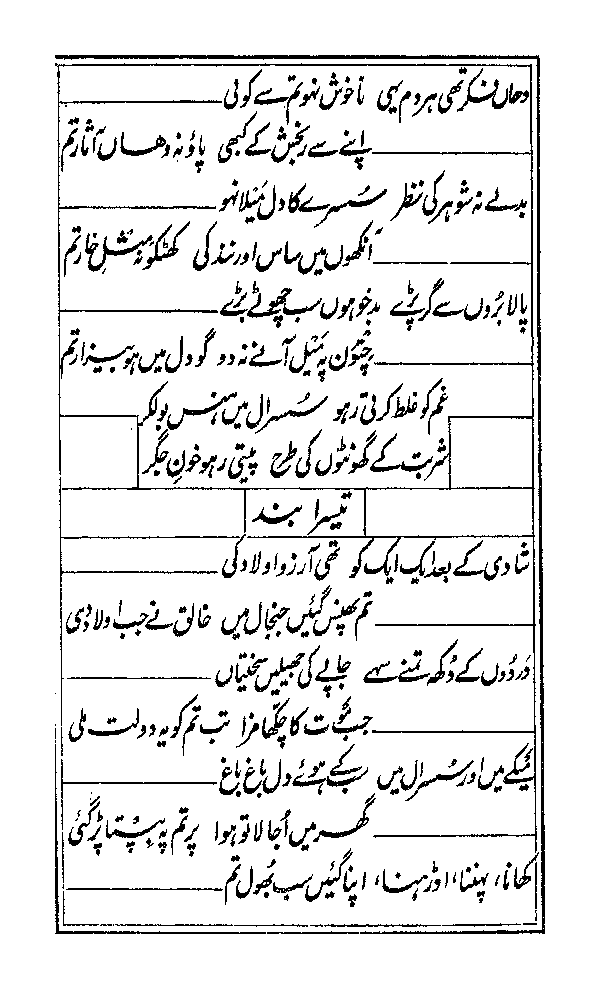 وھاں فکر تھی ہر دم یہی ناخوش نہو تم سے کوئی
اپنے سے رنجش کے کبھی پاؤ نہ وھاں آثار تم
بدلے نہ شوہر کی نظر سسرے کا دل مَیلا نہو
آنکھوں میں ساس اور نند کی کھٹکو نہ مثلِ خار تم
پالا بُروں سے گر پڑے بدخو ہوں سب چھوٹے بڑے
چتون پہ مَیل آنے نہ دو گو دل میں ہو بیزار تم
غم کو غلط کرتی رہو سسرال میں ہنس بولکر
شربت کے گھونٹوں کی طرح پیتی رہو خونِ جگر
تیسرا بند
شادی کے بعد ایک ایک کو تھی آرزو اولاد کی
تم پھنس گئیں جنجال میں خالق نے جب اولاد دی
دَردوں کے دُکھ تمنے سہے جاپے کی جھیلیں سختیاں
جب مَوت کا چکھا مزا تب تم کو یہ دولت ملی
مَیکے میں اور سسرال میں سب کے ہوئے دل باغ باغ
گھر میں اُجالا تو ہوا پر تم پہ بِپتا پڑ گئی
کھانا، پہننا، اوڑہنا، اپنا گئیں سب بھُول تم